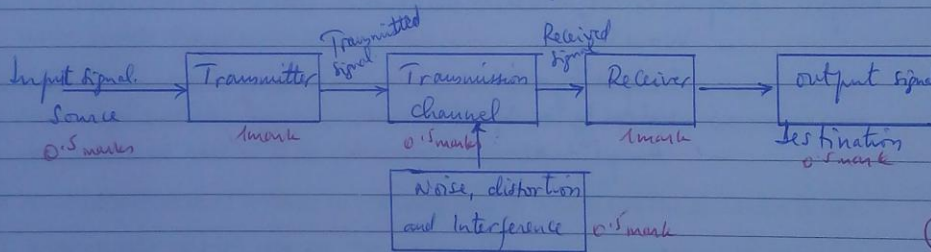 Input signal.
Source
0.5 marks
Transmitter
1mark
Transmitted
signal
Transmission
channel
0.5 mark
Received
signal
Receiver
1mark
output signa
destination
0.5 mark
Noise, distortion
and Interference
0.5 mark
(